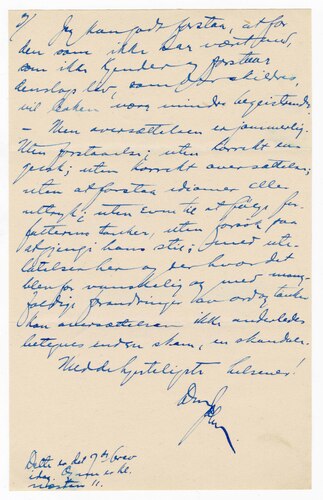 9/
Jeg kan godt forstaa, at for
den som ikke har vært jud,
som ikke kjender og forstaar
livslov, som der skildres,
vil boken være mindre begeistrende.
— Men oversættelsen er jammerlig.
Uten forstaaelse; uten korrekt en-
gelsk; uten korrekt oversættelse;
uten at forstaa idiomer eller
uttryk; uten evne til at følge for-
fatterens tanker, uten forsøk paa
at gjengi hans stil; med ute-
latelser her og der hvor det
blev for vanskelig og med mang-
foldige forandringer av ord og tanke
kan oversættelsen ikke anderledes
betegnes end en skam, en skandale.
Med de hjerteligste hilsener!
Din
Dette er det 9de brev
idag. Og nu er kl.
næsten 11.